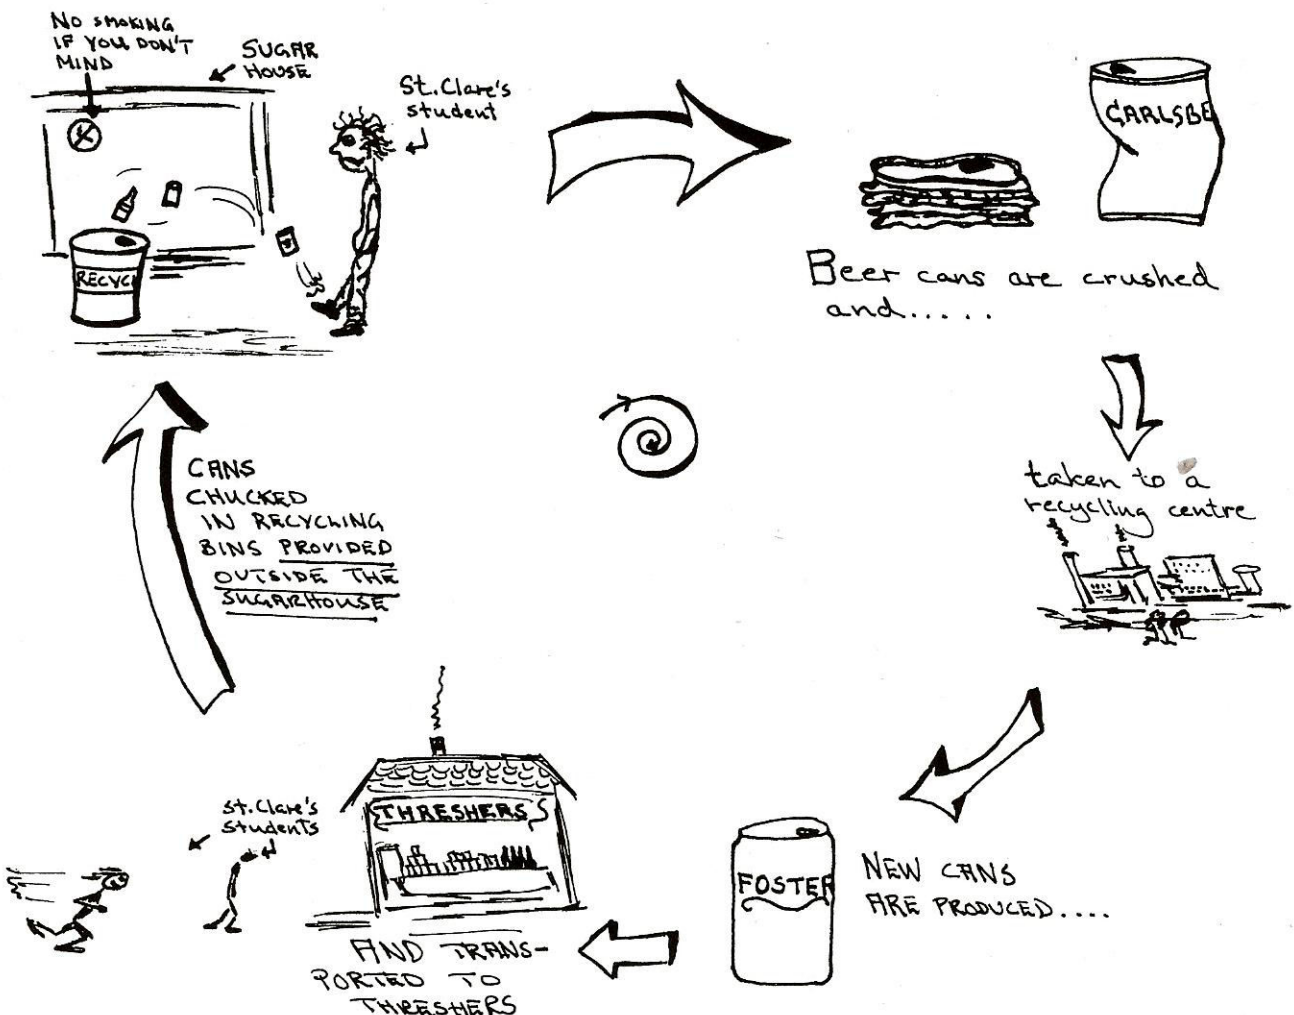 NO SMOKING
IF YOU DON'T
MIND
SUGAR
HOUSE
St. Clare's
student
RECYC
CARLSBE
Beer cans are crushed
and.....
taken to a
recycling centre
NEW CANS
ARE PRODUCED....
FOSTER
THRESHERS
AND TRANS-
PORTED TO
THRESHERS
St. Clare's
students
CANS
CHUCKED
IN RECYCLING
BINS PROVIDED
OUTSIDE THE
SUGARHOUSE